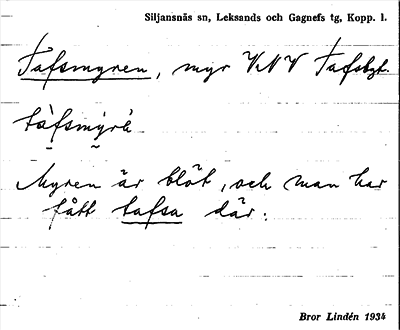 Siljansnäs sn, Leksands och Gagnefs tg, Kopp. l.
Tafsmyren, myr VNV Tafsbgt.
tàfsmýrè
Myren är blöt, och man har
fått tafsa där.
Bror Lindén 1934